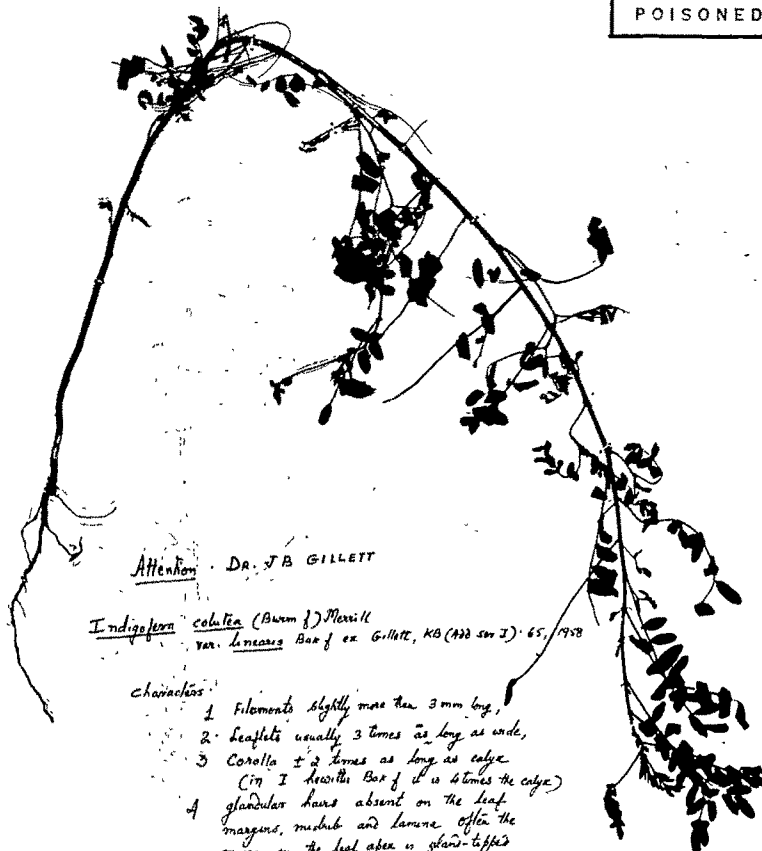 POISONED
Attention · DR. J B GILLETT
Indigofera colutea (Burm f) Merrill
var. linearis Bak f ex Gillett, KB (Add ser I) · 65, 1958
Characters
1 Filaments slightly more than 3 mm long,
2 · Leaflets usually 3 times as long as wide,
3 Corolla ± 2 times as long as calyx
(in I Bak f it is 4 times the calyx)
4 glandular hairs absent on the leaf
margins, midrib and lamina often the
on the leaf apex is gland-tipped